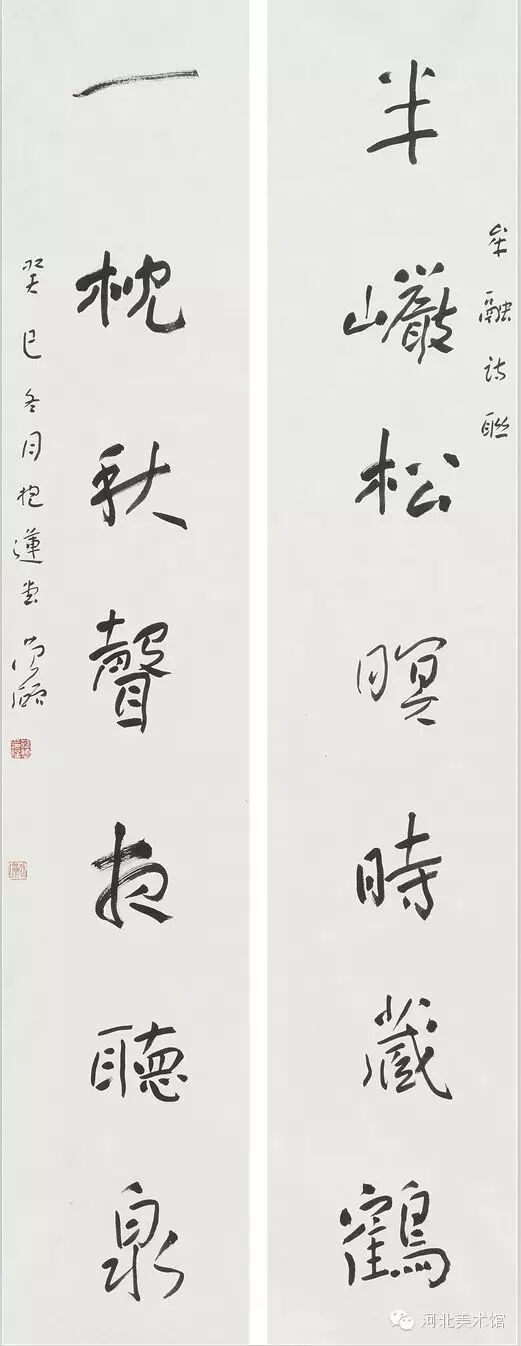 牟融诗联
半巗松暝時藏鶴
一枕秋聲夜聽泉
癸巳冬月抱蓮堂
河北美术馆